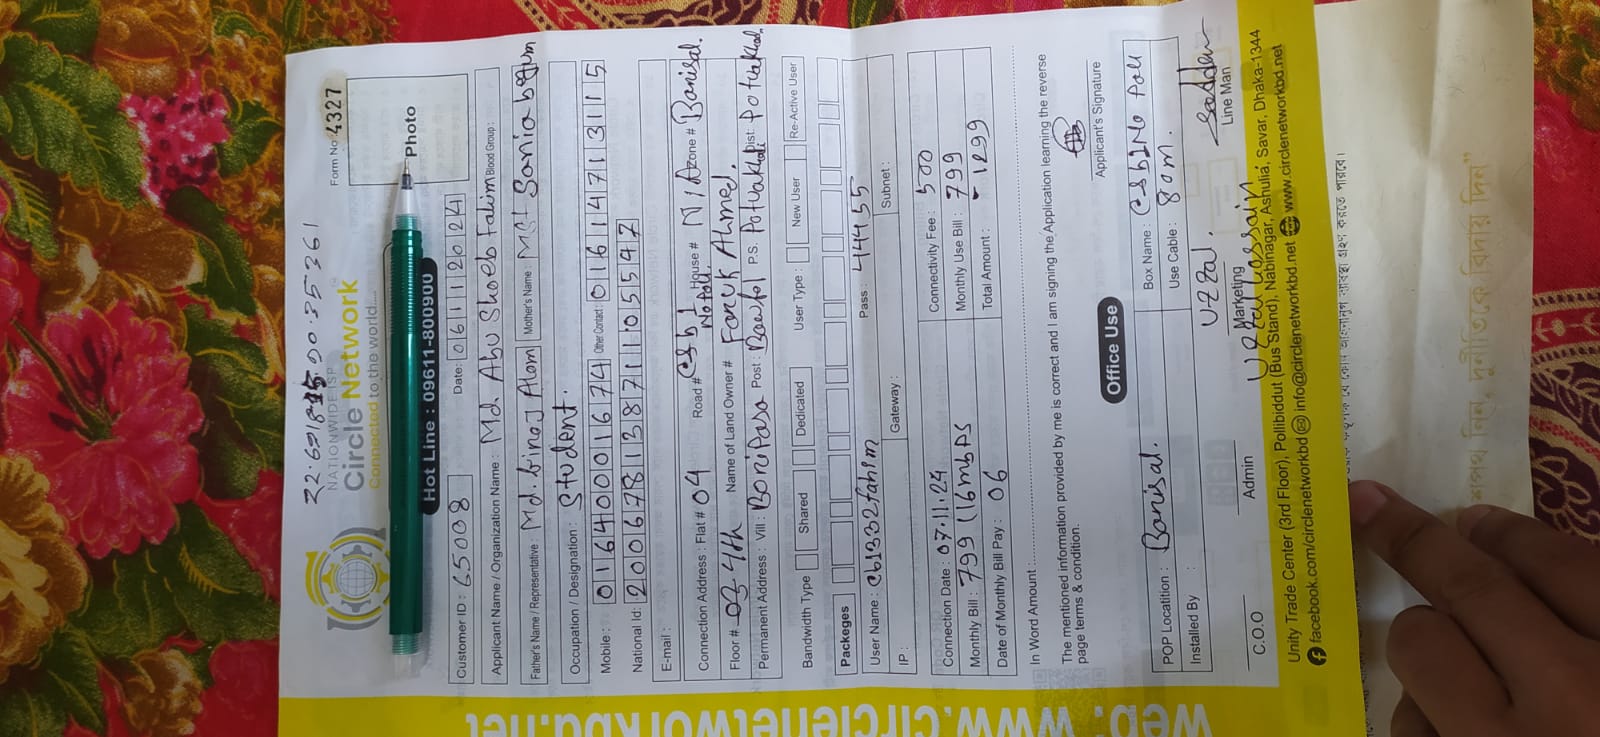 22.691815,90.357361
Form No: 4327
NATIONWIDE ISP
Circle Network
Connected to the world....
Photo
Hot Line : 09611-800900
Customer ID : 65008 Date: 06 11 2024
Applicant Name / Organization Name : Md. Abu Shoeb Fahim Blood Group:
Father's Name / Representative : Md. firoj Alom Mother's Name : Mst Sonia begum
Occupation / Designation : Student.
Mobile : 01640001674 Other Contact : 01614713115
National Id: 20067813871105547
E-mail :
Connection Address : Flat # 04 Road # House # N/A Zone # Barisal.
Floor # 4th Name of Land Owner # Faruk Ahmed.
Permanent Address : Vill : Post : P.S. Potuakhali Dist: Potuakhali
Bandwidth Type Shared Dedicated User Type : New User Re-Active User
Packeges
User Name : cb1332fahim Pass : 44455
IP : Gateway : Subnet :
Connection Date : 07.11.24 Connectivity Fee : 500
Monthly Bill : 799 (16mbps Monthly Use Bill : 799
Date of Monthly Bill Pay : 06 Total Amount : - 1299
In Word Amount :
The mentioned information provided by me is correct and I am signing the Application learning the reverse
page terms & condition.
Applicant's Signature
Office Use
POP Locatition : Barisal. Box Name :
Installed By : Use Cable : 80m.
Uzzal.
C.O.O Admin Marketing Line Man
Uzzal Hossain
Unity Trade Center (3rd Floor), Pollibiddut (Bus Stand), Nabinagar, Ashulia, Savar, Dhaka-1344
facebook.com/circlenetworkbd info@circlenetworkbd.net www.circlenetworkbd.net
web: www.circlenetworkbd.net
শপথ নিন, দুর্নীতিকে বিদায় দিন"